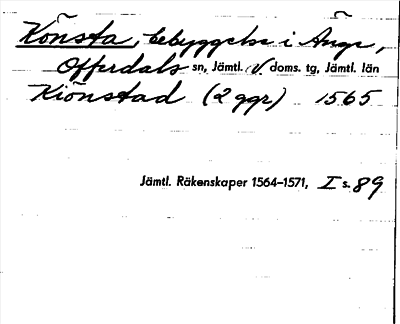 Könsta, bebyggelse i Änge,
Offerdals sn, Jämtl. V doms. tg, Jämtl. län
Kiönstad (2 ggr) 1565
Jämtl. Räkenskaper 1564–1571, I s. 89